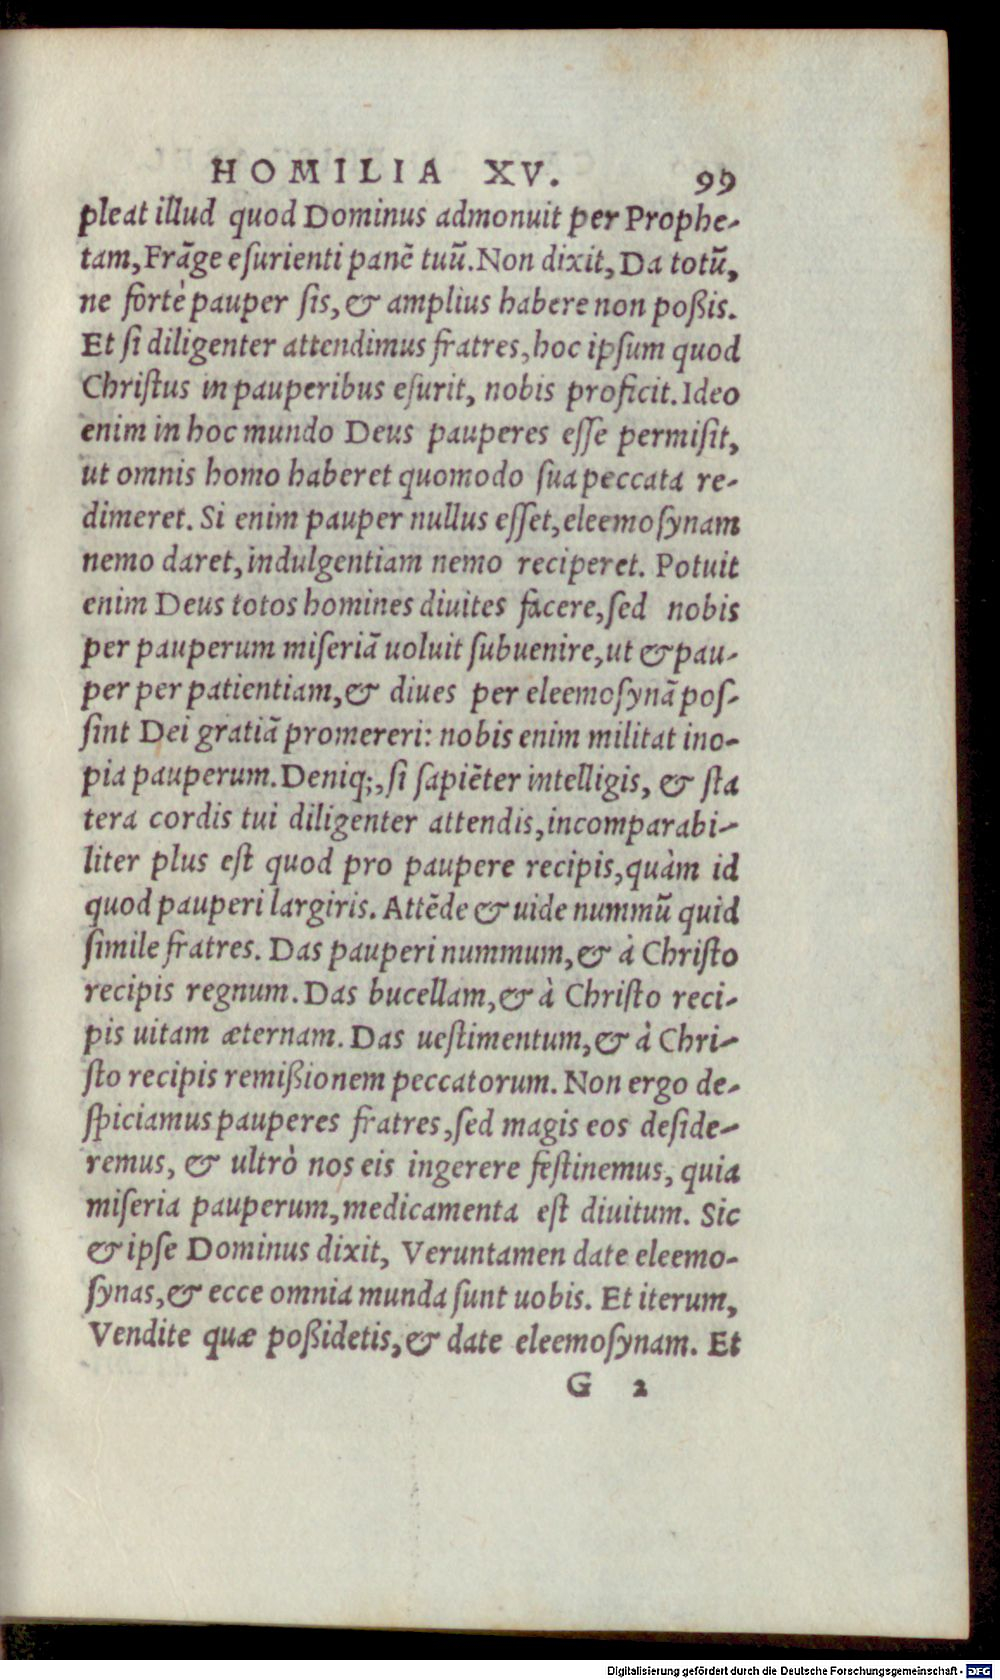 HOMILIA XV. 99
pleat illud quod Dominus admonuit per Prophe-
tam, Frãge eſurienti panẽ tuũ. Non dixit, Da totũ,
ne fortè pauper ſis, & amplius habere non poßis.
Et ſi diligenter attendimus fratres, hoc ipſum quod
Chriſtus in pauperibus eſurit, nobis proficit. Ideo
enim in hoc mundo Deus pauperes eſſe permiſit,
ut omnis homo haberet quomodo ſua peccata re-
dimeret. Si enim pauper nullus eſſet, eleemoſynam
nemo daret, indulgentiam nemo reciperet. Potuit
enim Deus totos homines diuites facere, ſed nobis
per pauperum miſeriã uoluit ſubuenire, ut & pau-
per per patientiam, & diues per eleemoſynã poſ-
ſint Dei gratiã promereri: nobis enim militat ino-
pia pauperum. Deniq;, ſi ſapiẽter intelligis, & ſta
tera cordis tui diligenter attendis, incomparabi-
liter plus eſt quod pro paupere recipis, quàm id
quod pauperi largiris. Attẽde & uide nummũ quid
ſimile fratres. Das pauperi nummum, & à Chriſto
recipis regnum. Das bucellam, & à Chriſto reci-
pis uitam æternam. Das ueſtimentum, & à Chri-
ſto recipis remißionem peccatorum. Non ergo de-
ſpiciamus pauperes fratres, ſed magis eos deſide-
remus, & ultrò nos eis ingerere feſtinemus, quia
miſeria pauperum, medicamenta eſt diuitum. Sic
& ipſe Dominus dixit, Veruntamen date eleemo-
ſynas, & ecce omnia munda ſunt uobis. Et iterum,
Vendite quæ poßidetis, & date eleemoſynam. Et
G 2
Digitalisierung gefördert durch die Deutsche Forschungsgemeinschaft - DFG